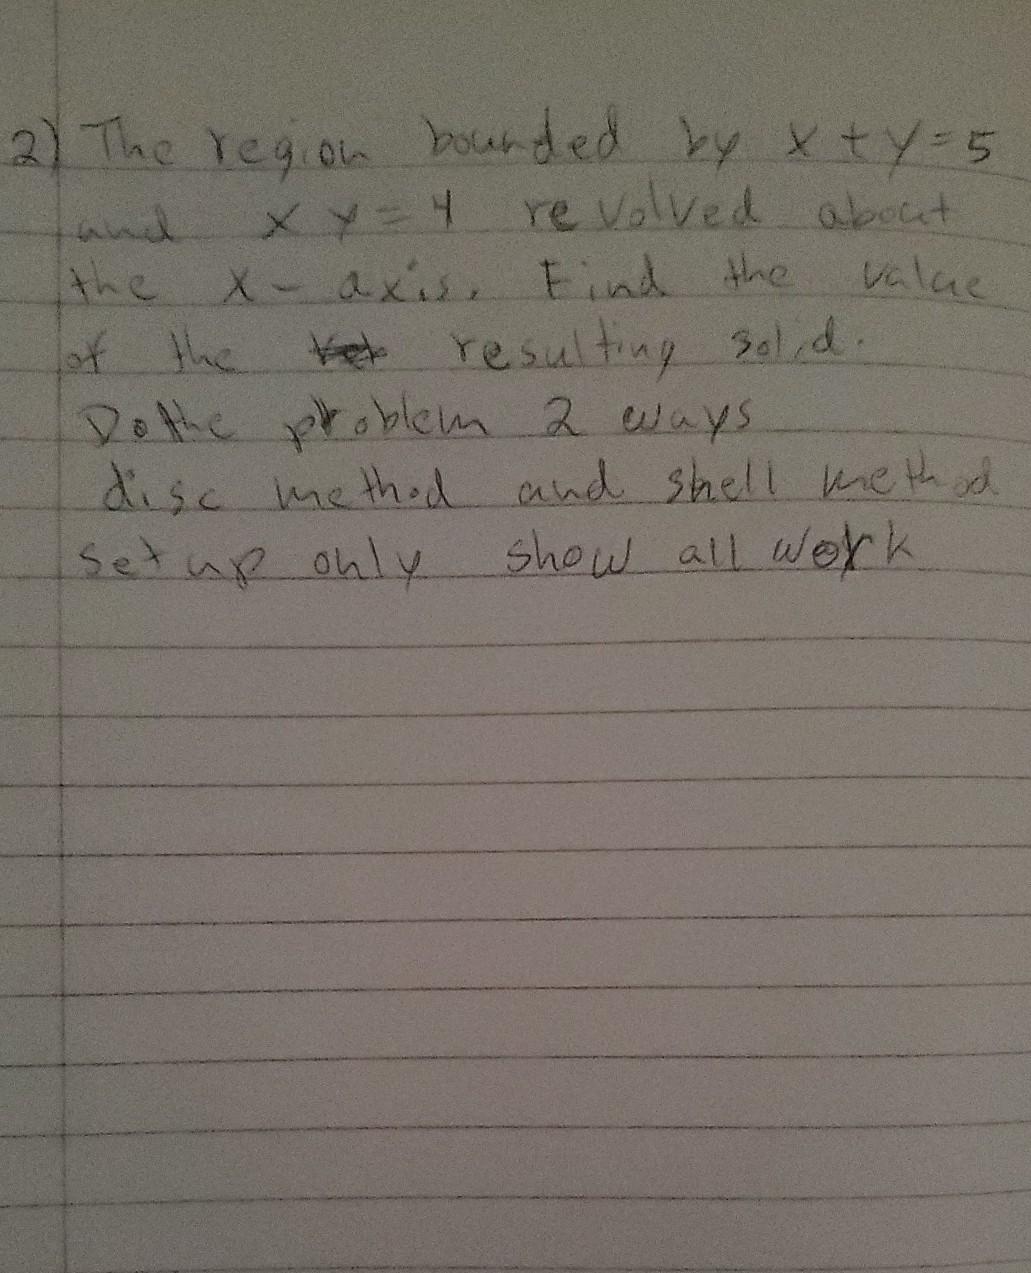 2) The region bounded by x + y = 5
and x y = 4 revolved about
the x - axis. Find the value
of the resulting solid.
Do the problem 2 ways
disc method and shell method
set up only show all work